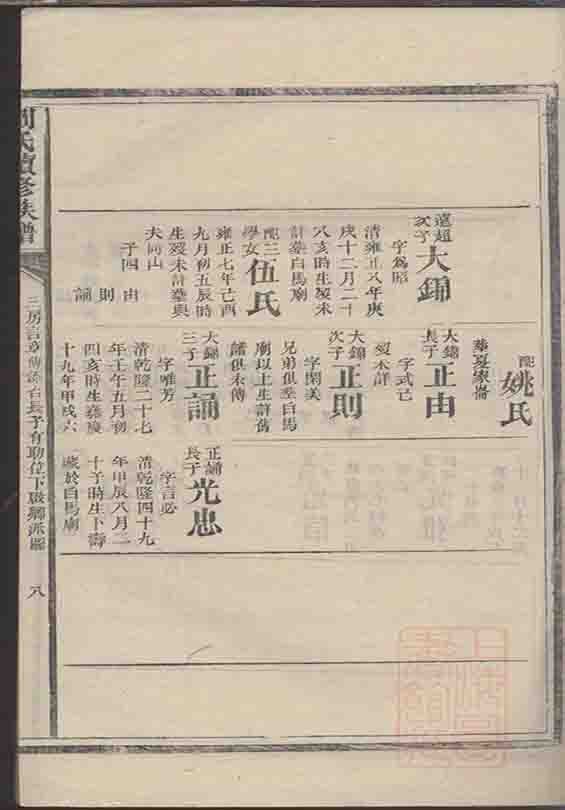 配姚氏
葬夏家崙
遠超
次子
大錦
字為昭
清雍正八年庚
戌十二月二十
八亥時生歿未
詳葬白馬廟
配三
學女
伍氏
雍正七年己酉
九月初五辰時
生歿未詳葬與
夫同山
子四
由
則
誦
大錦
長子
正由
字式己
歿未詳
大錦
次子
正則
字閑美
兄弟俱葬白馬
廟以上生詳舊
譜俱未傳
大錦
三子
正誦
字唯芳
清乾隆二十七
年壬午五月初
四亥時生嘉慶
十九年甲戌六
正誦
長子
光忠
字言必
清乾隆四十九
年甲辰八月二
十子時生卜壽
藏於白馬廟
氏續修族譜
三房
長子
位下
派圖
八